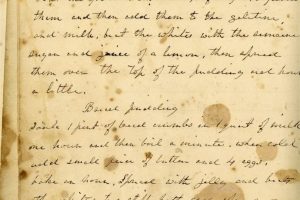 them and then add them to the gelatine
and milk, beat the whites with the remaining
sugar and juice of a lemon, then spread
them over the top of the pudding and brown
a little.
Bread pudding
Soak 1 pint of bread crumbs in 1 quart of milk
one hour and then boil a minute, when cold
add small piece of button and 4 eggs,
bake an hour, Spread with jelly and
the whites